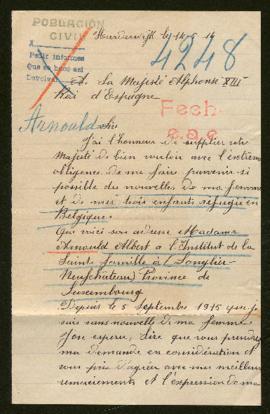 POBLACIÓN
CIVIL
A
Pedir informes
Que se hace así
4248
A Sa Majesté Alphonse XIII
Roi d'Espagne
Fech
Arnould
J'ai l'honneur de supplier votre
Majesté de bien vouloir avec l'entière
obligence de me faire parvenir si
possible des nouvelles de ma femme
et de mes trois enfants refugié en
Belgique.
voici son adresse Madame
Arnould Albert à l'Institut de la
Sainte famille à Longlier
Neufchâteau Province de
Luxembourg
Depuis le 5 Septembre 1915 que je
suis sans nouvelle de ma femme
J'ose esperer, Sire que vous prendrez
ma demande en considération et
vous prie d'agréer avec mes meilleurs
remerciements et l'expression de ma